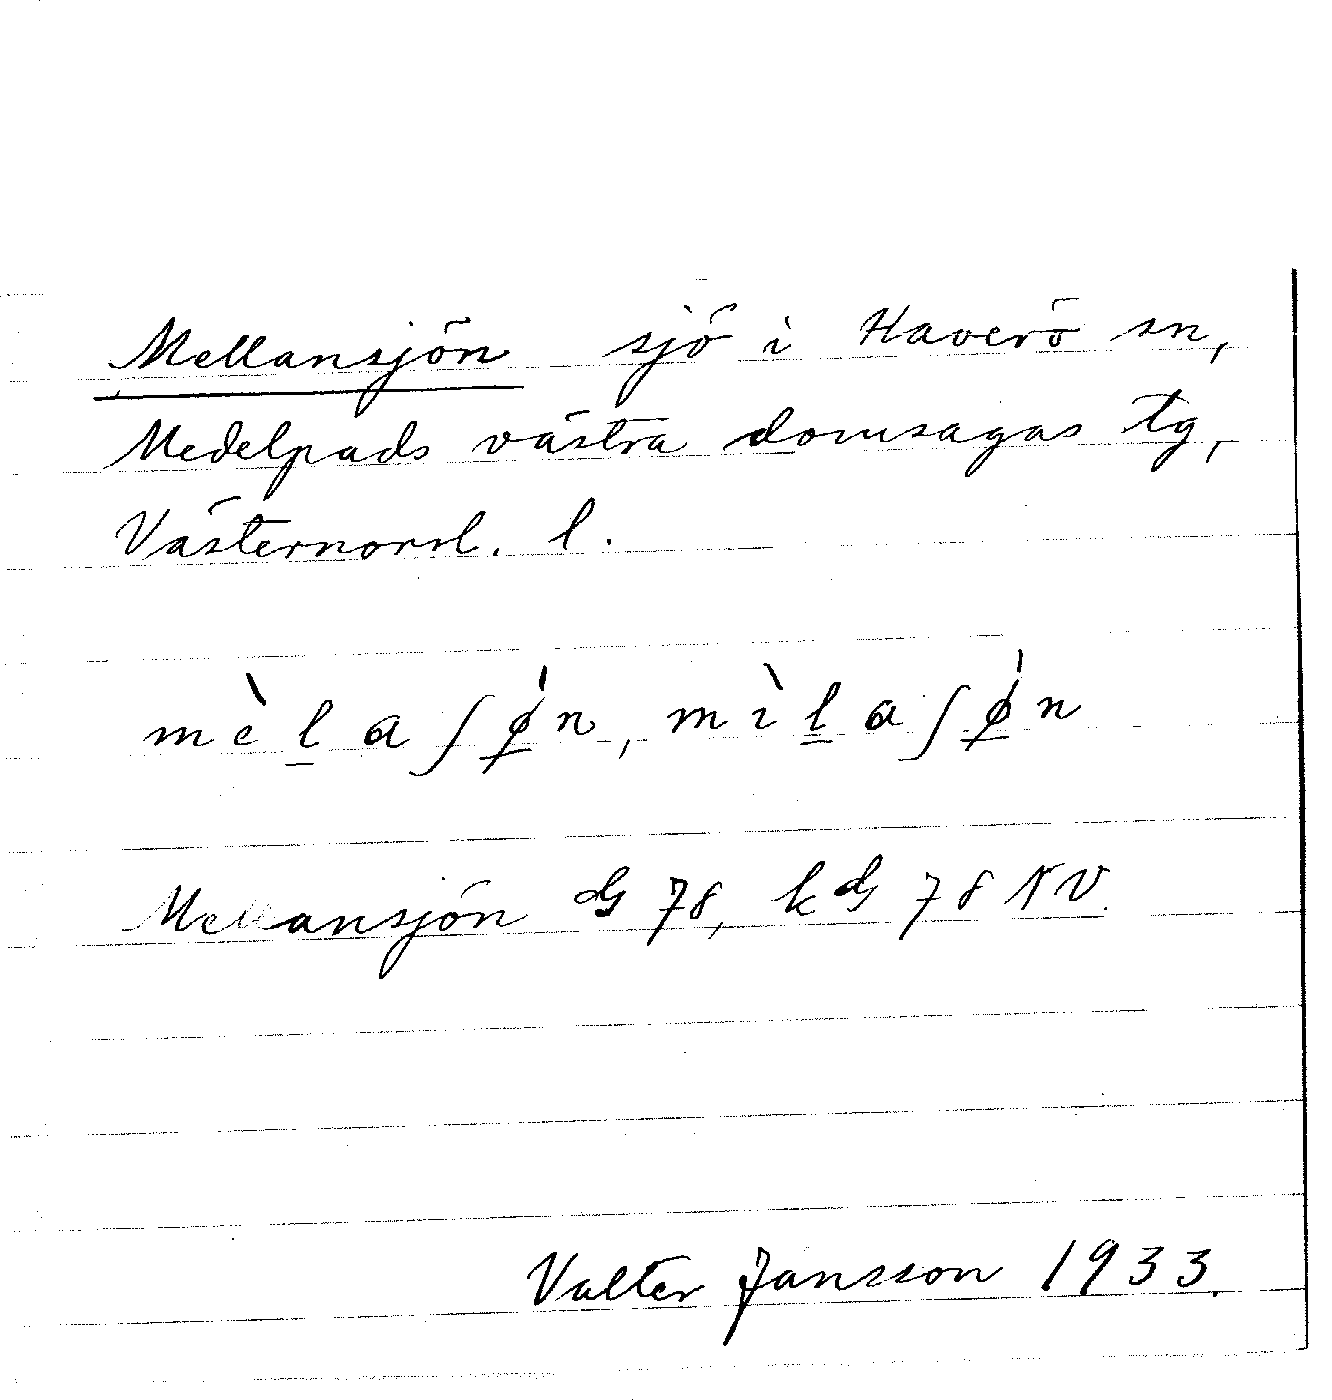 Mellansjön sjö i Haverö sn,
Medelpads västra domsagas tg,
Västernorrl. l.
mè̀l̲aʃǿ̲n, mı̀l̲aʃǿ̲n
Mellansjön G 78, kG 78 NV.
Valter Jansson 1933.